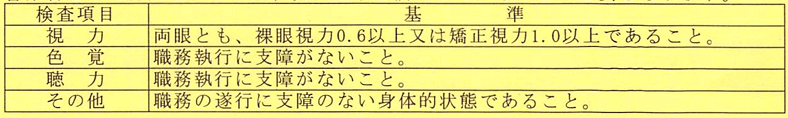 検査項目 基準
視力 両眼とも、裸眼視力0.6以上又は矯正視力1.0以上であること。
色覚 職務執行に支障がないこと。
聴力 職務執行に支障がないこと。
その他 職務の遂行に支障のない身体的状態であること。